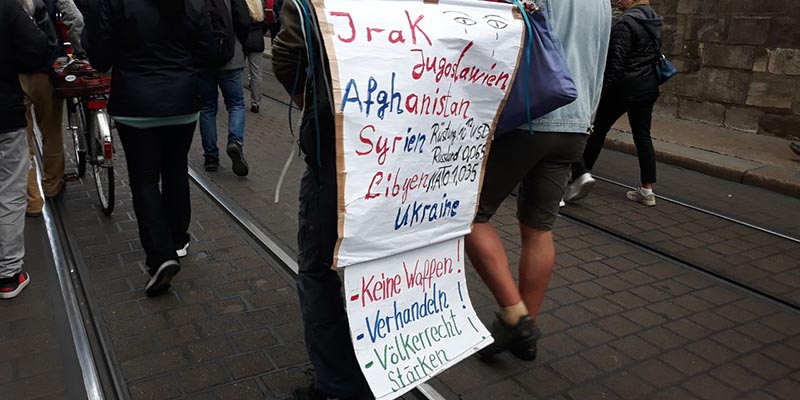 Irak
Jugoslawien
Afghanistan
Syrien
Rüstung in USD
Russland 0,065
Libyen NATO 1,035
Ukraine
- Keine Waffen!
- Verhandeln!
- Völkerrecht!
stärken